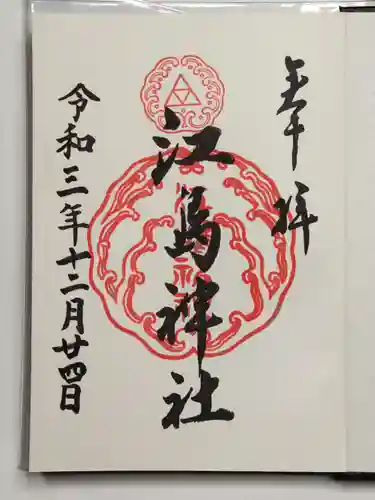 奉拝
江島神社
令和三年十二月廿四日